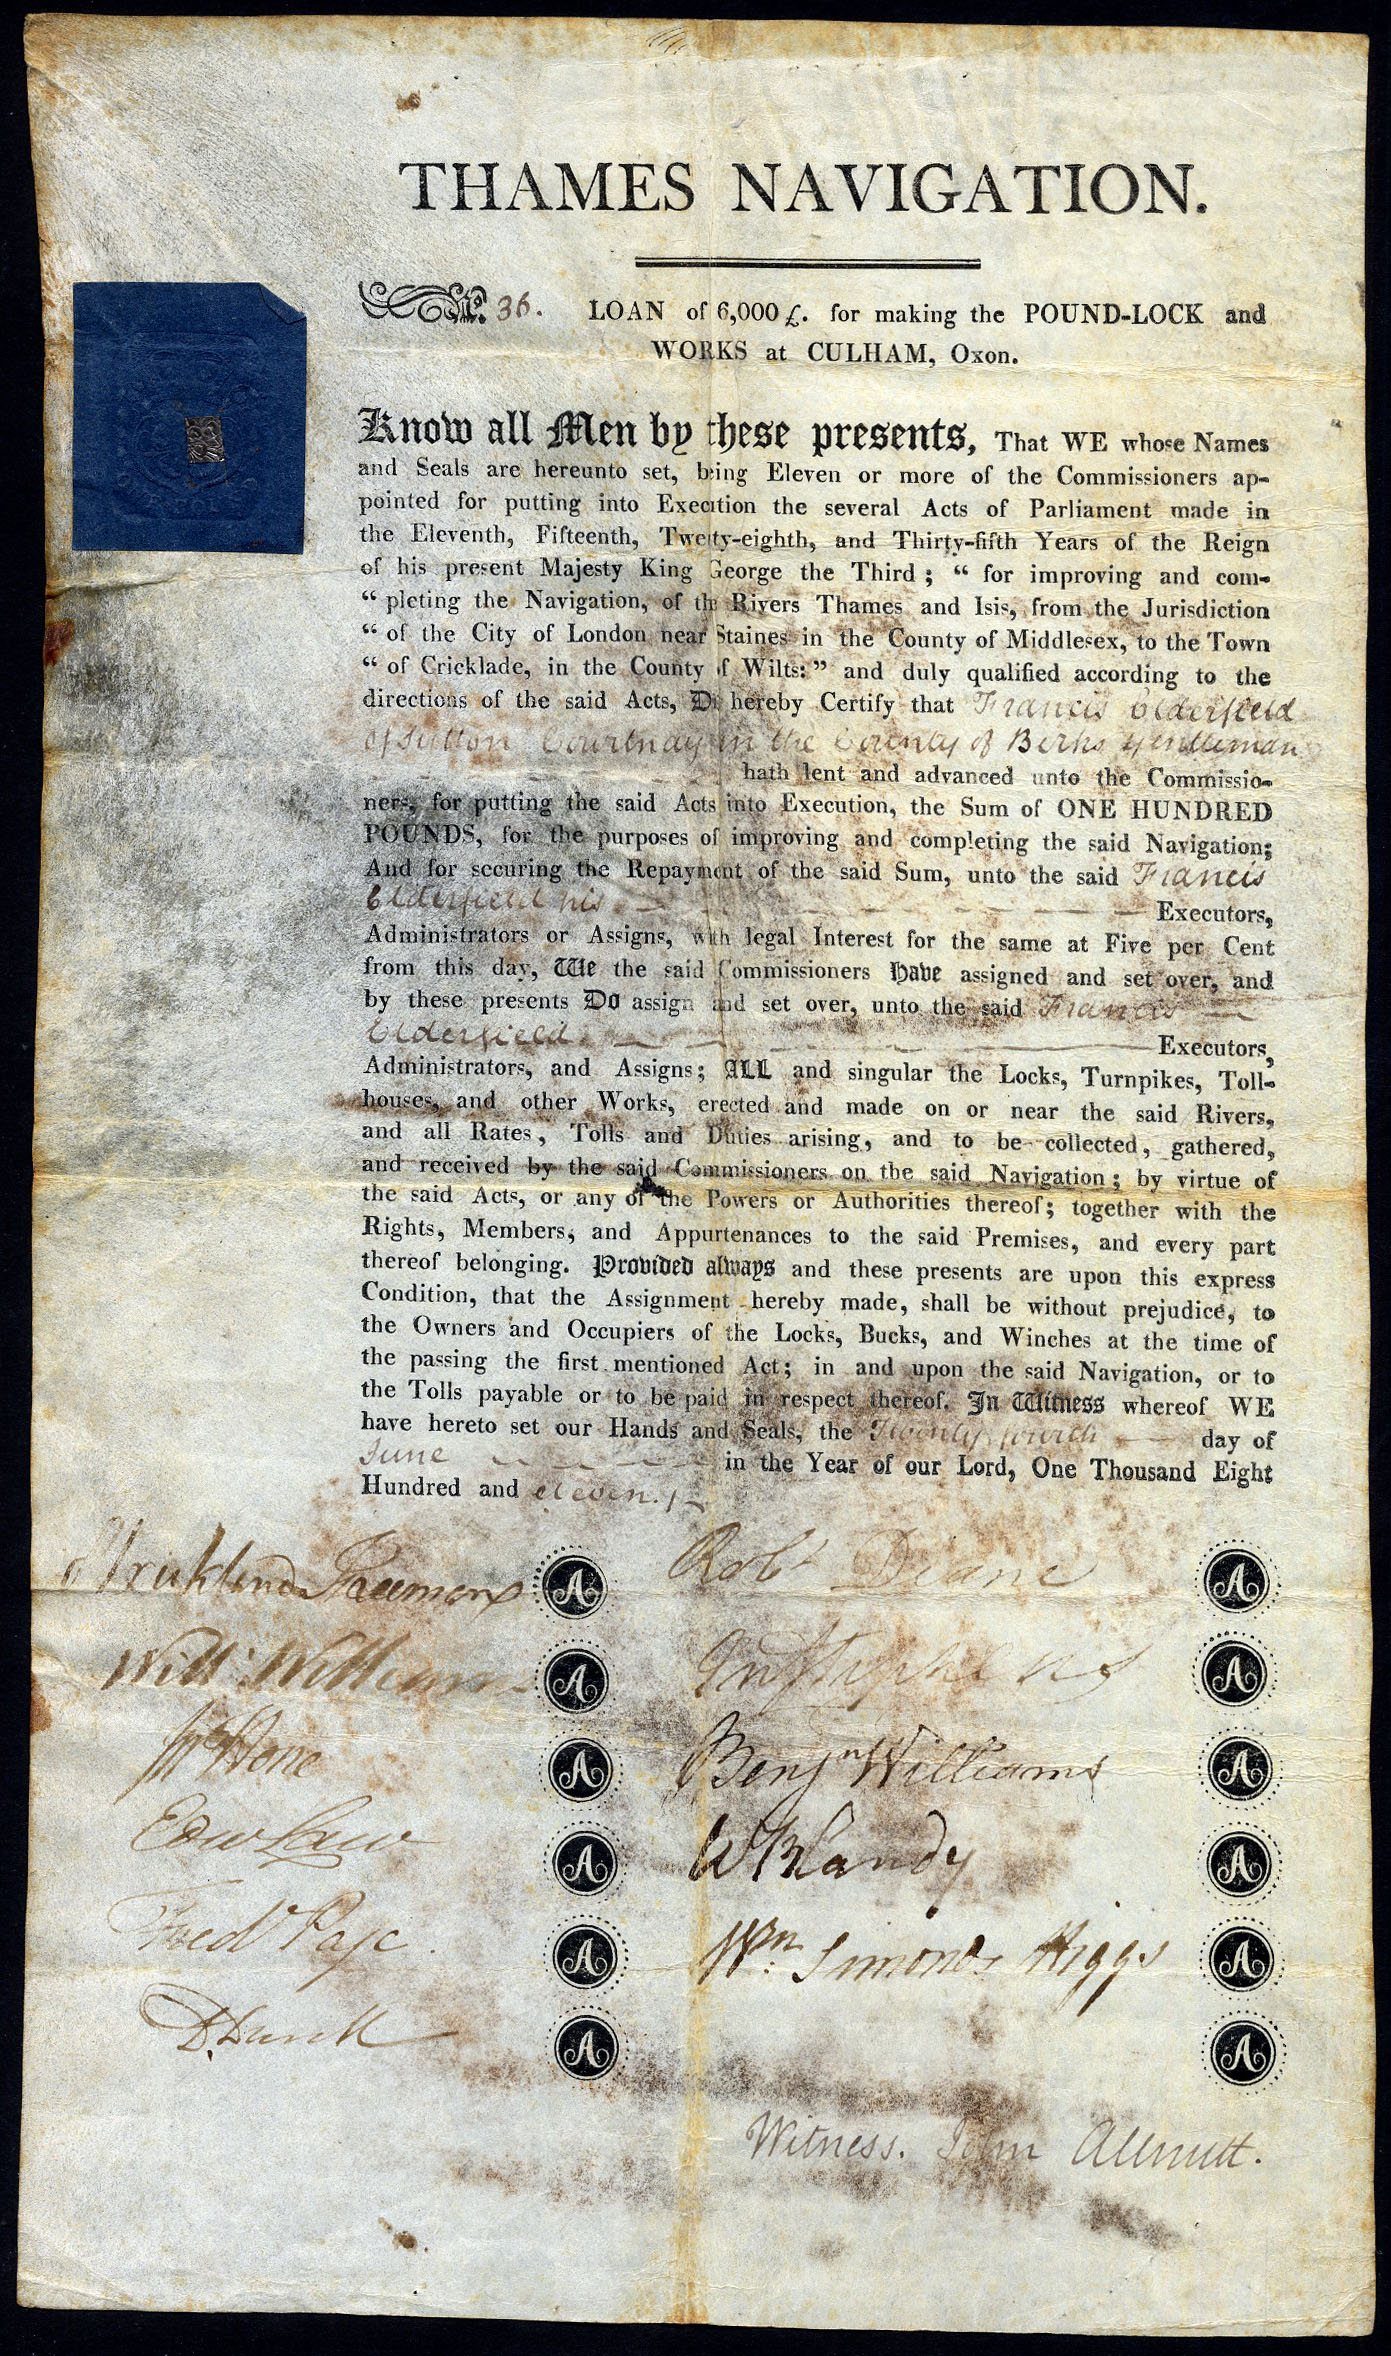 THAMES NAVIGATION.
No. 36. LOAN of 6,000 £. for making the POUND-LOCK and
WORKS at CULHAM, Oxon.
Know all Men by these presents, That WE whose Names
and Seals are hereunto set, being Eleven or more of the Commissioners ap-
pointed for putting into Execution the several Acts of Parliament made in
the Eleventh, Fifteenth, Twenty-eighth, and Thirty-fifth Years of the Reign
of his present Majesty King George the Third; “ for improving and com-
“ pleting the Navigation, of the Rivers Thames and Isis, from the Jurisdiction
“ of the City of London near Staines in the County of Middlesex, to the Town
“ of Cricklade, in the County of Wilts:” and duly qualified according to the
directions of the said Acts, Do hereby Certify that Francis Elderfield
of Sutton Courtnay in the County of Berks Gentleman
hath lent and advanced unto the Commissio-
ners, for putting the said Acts into Execution, the Sum of ONE HUNDRED
POUNDS, for the purposes of improving and completing the said Navigation;
And for securing the Repayment of the said Sum, unto the said Francis
Elderfield his Executors,
Administrators or Assigns, with legal Interest for the same at Five per Cent
from this day, We the said Commissioners Have assigned and set over, and
by these presents Do assign and set over, unto the said Francis
Elderfield Executors,
Administrators, and Assigns; ALL and singular the Locks, Turnpikes, Toll-
houses, and other Works, erected and made on or near the said Rivers,
and all Rates, Tolls and Duties arising, and to be collected, gathered,
and received by the said Commissioners on the said Navigation; by virtue of
the said Acts, or any of the Powers or Authorities thereof; together with the
Rights, Members, and Appurtenances to the said Premises, and every part
thereof belonging. Provided always and these presents are upon this express
Condition, that the Assignment hereby made, shall be without prejudice, to
the Owners and Occupiers of the Locks, Bucks, and Winches at the time of
the passing the first mentioned Act; in and upon the said Navigation, or to
the Tolls payable or to be paid in respect thereof. In Witness whereof WE
have hereto set our Hands and Seals, the Twenty fourth day of
June in the Year of our Lord, One Thousand Eight
Hundred and eleven.
Strickland Freeman A Robt Deane A
Willm Williams A Stephens A
Wm Hone A Benjn Williams A
Edw Law A W Blandy A
Fredk Page A Wm Simonds Higgs A
A A
Witness. John Allnutt.